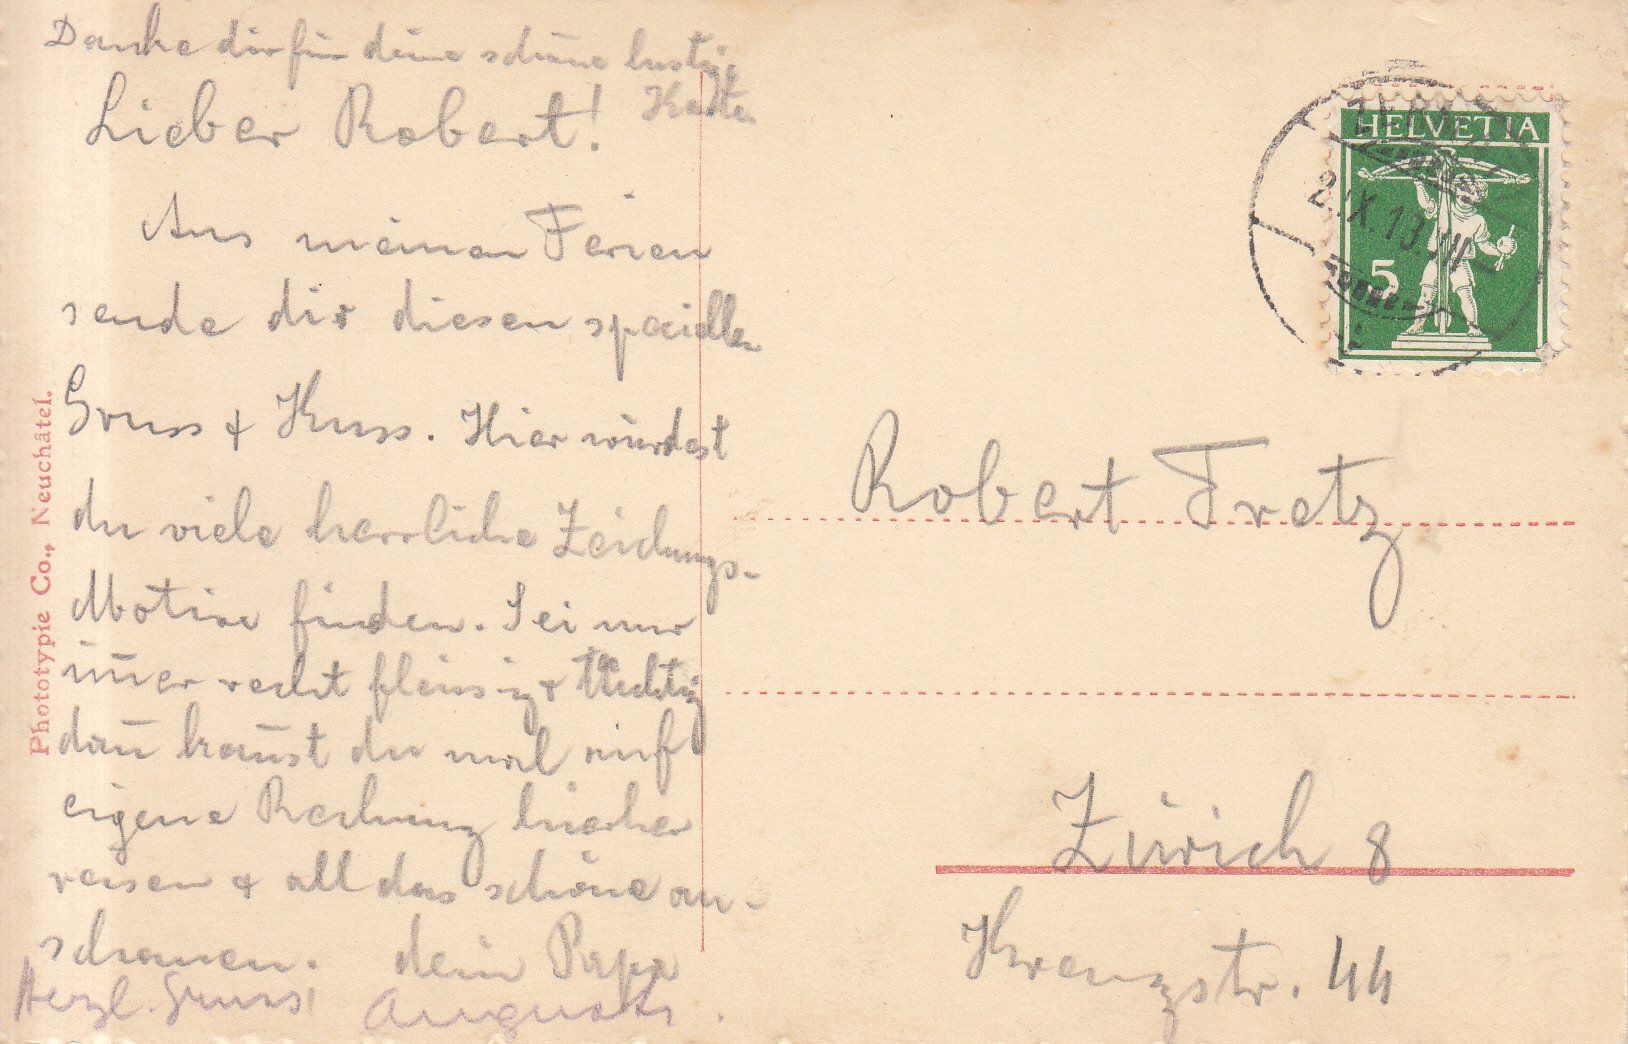 Danke dir für deine schöne lustige
Karte.
Lieber Robert!
Aus meinen Ferien
sende dir diesen speciellen
Gruss & Kuss. Hier würdest
du viele herrliche Zeichnungs-
Motive finden. Sei nur
im̄er recht fleissig & tüchtig
dan̄ kan̄st du mal auf
eigene Rechnung hierher
reisen & all das schöne an-
schauen. dein Papa
Herzl. Gruss!
Phototypie Co., Neuchâtel.
HELVETIA
5
IX.13.
Robert Fretz
Zürich 8
Kreuzstr. 44